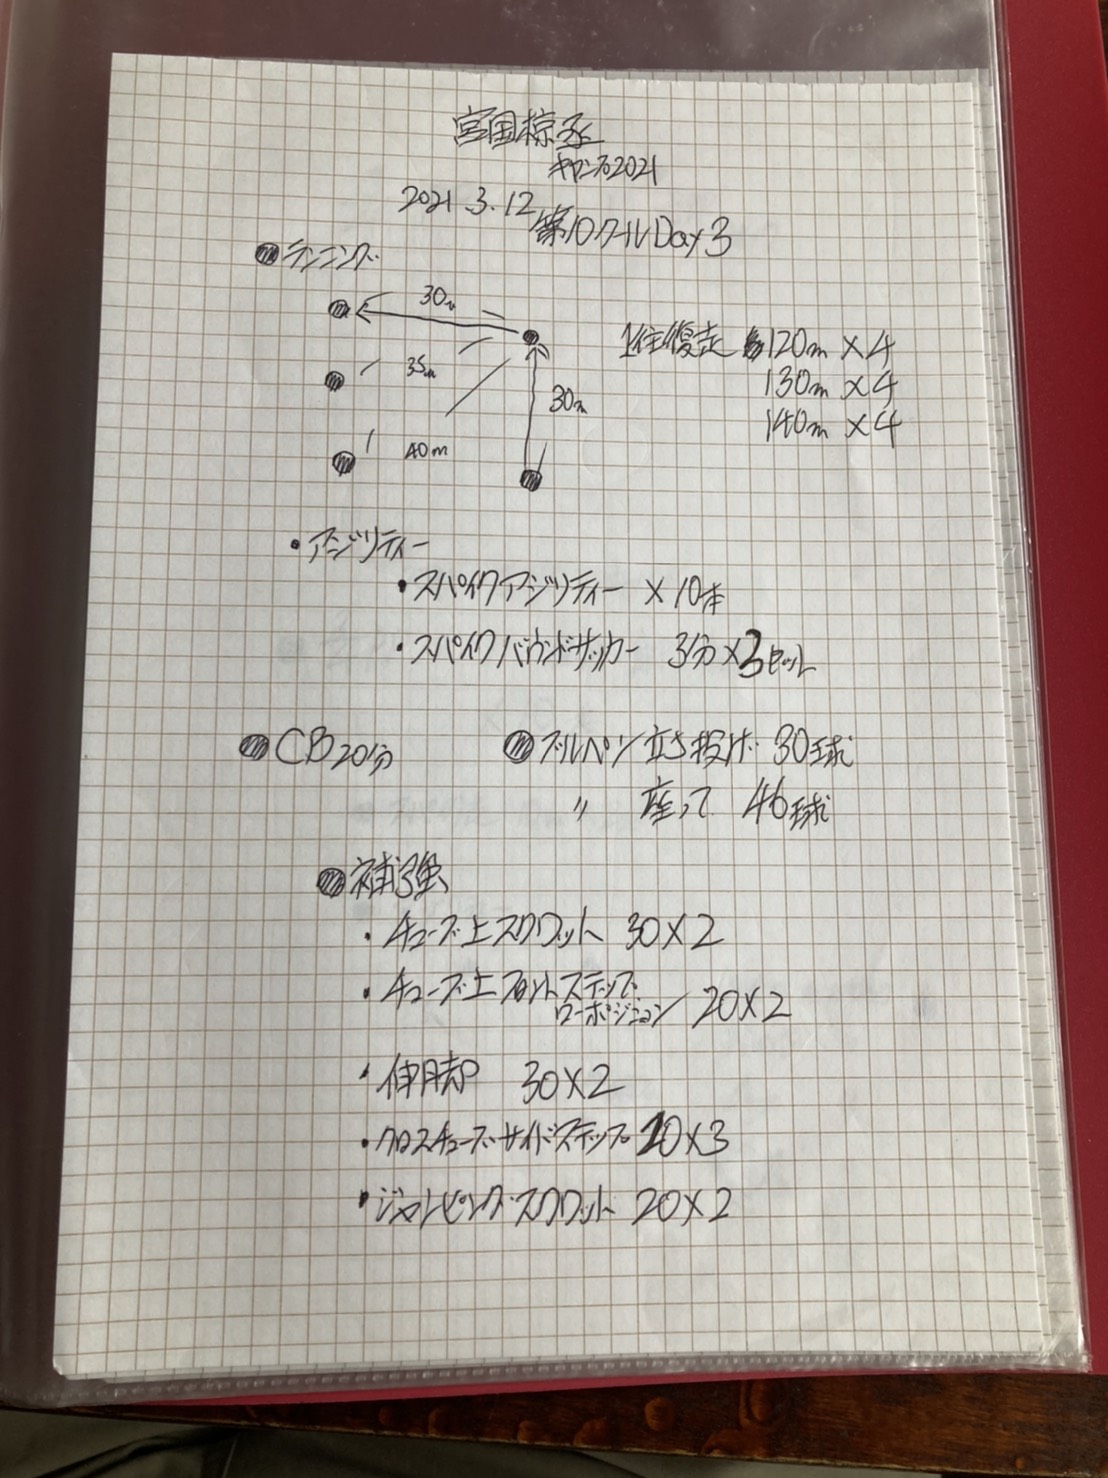 宮國椋丞
キャンプ2021
2021.3.12
第10クールDay3
●ランニング
30m
35m
40m
30m
1往復走 120m×4
130m×4
140m×4
・アジリティー
・スパイクアジリティー ×10本
・スパイクバウンドサッカー 3分×3セット
●CB20分
●ブルペン立ち投げ 30球
〃 座って 46球
●補強
・チューブ上スクワット 30×2
・チューブ上フロントステップ
ワーポジション 20×2
・伸脚 30×2
・クロスチューブサイドステップ 20×3
・ジャンピングスクワット 20×2